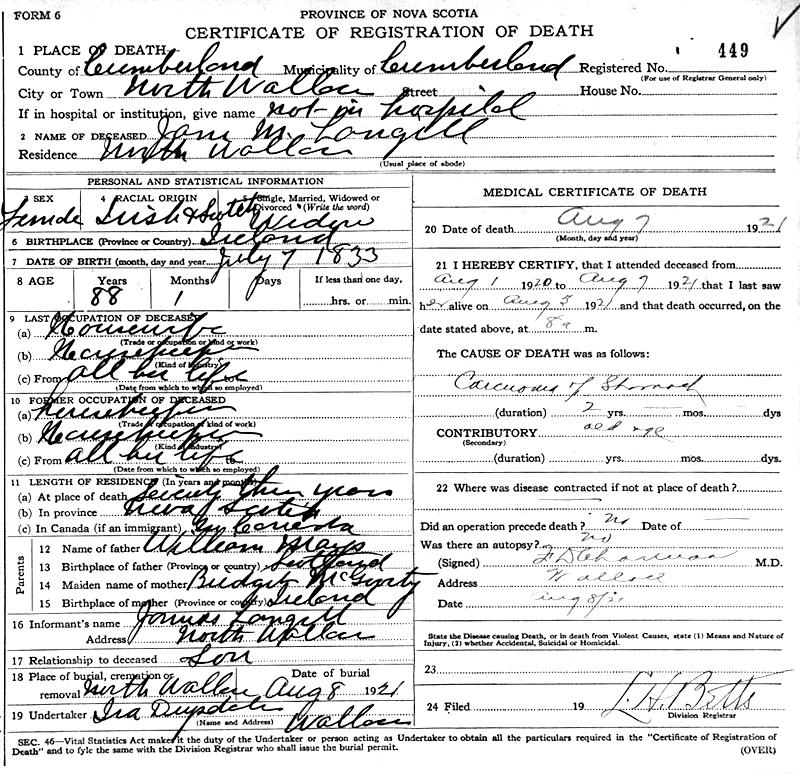 FORM 6
PROVINCE OF NOVA SCOTIA
CERTIFICATE OF REGISTRATION OF DEATH
1 PLACE OF DEATH
County of Cumberland Municipality of Cumberland Registered No. 449
(For use of Registrar General only)
City or Town North Wallace Street House No.
If in hospital or institution, give name not in hospital
2 NAME OF DECEASED Jane M. Langill
Residence North Wallace
(Usual place of abode)
PERSONAL AND STATISTICAL INFORMATION
3 SEX 4 RACIAL ORIGIN 5 Single, Married, Widowed or Divorced (Write the word)
Female Irish & Scotch Widow
6 BIRTHPLACE (Province or Country) Ireland
7 DATE OF BIRTH (month, day and year) July 7 1833
8 AGE Years Months Days If less than one day,
88 1 hrs. or min.
9 LAST OCCUPATION OF DECEASED
(a) Housewife
(Trade or occupation or kind of work)
(b) Housekeeper
(Kind of industry)
(c) From all her life to
(Date from which to which so employed)
10 FORMER OCCUPATION OF DECEASED
(a) housekeeper
(Trade or occupation or kind of work)
(b) Housekeeper
(Kind of industry)
(c) From all her life
(Date from which to which so employed)
11 LENGTH OF RESIDENCE (In years and months)
(a) At place of death Seventy three years
(b) In province Nova Scotia
(c) In Canada (if an immigrant) In Canada
Parents
12 Name of father William
13 Birthplace of father (Province or country) Scotland
14 Maiden name of mother Bridget McGourty
15 Birthplace of mother (Province or country) Ireland
16 Informant's name Langill
Address North Wallace
17 Relationship to deceased Son
18 Place of burial, cremation or removal North Wallace Date of burial Aug 8 1921
19 Undertaker Ira Wallace
(Name and Address)
MEDICAL CERTIFICATE OF DEATH
20 Date of death Aug 7 1921
(Month, day and year)
21 I HEREBY CERTIFY, that I attended deceased from
Aug 1 1920 to Aug 7 1921 that I last saw
her alive on Aug 5 1921 and that death occurred, on the
date stated above, at 8 a m.
The CAUSE OF DEATH was as follows:
Carcinoma of Stomach
(duration) 2 yrs. mos. dys
CONTRIBUTORY old age
(Secondary)
(duration) yrs. mos. dys.
22 Where was disease contracted if not at place of death?
Did an operation precede death? no Date of
Was there an autopsy? no
(Signed) M.D.
Address Wallace
Date Aug 8/21
State the Disease causing Death, or in death from Violent Causes, state (1) Means and Nature of
Injury, (2) whether Accidental, Suicidal or Homicidal.
23
24 Filed 19 L. H. Betts
Division Registrar
SEC. 46—Vital Statistics Act makes it the duty of the Undertaker or person acting as Undertaker to obtain all the particulars required in the "Certificate of Registration of
Death" and to fyle the same with the Division Registrar who shall issue the burial permit. (OVER)